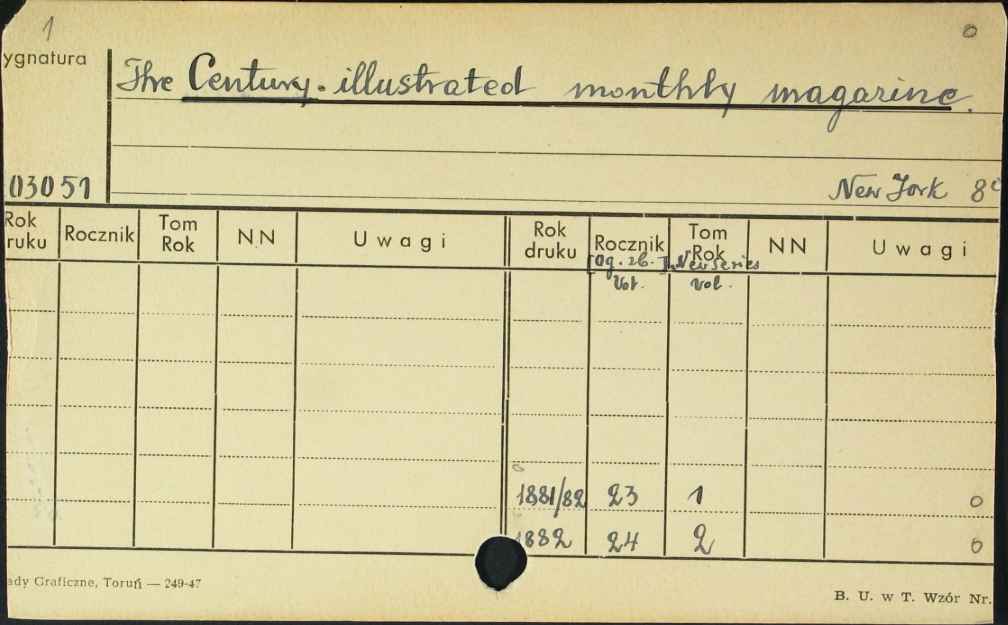 1 0
ygnatura
The Century illustrated monthly magazine.
03051 New York 8°
Rok ruku Rocznik Tom Rok NN Uwagi Rok druku Rocznik Tom Rok NN Uwagi
[Og. zb.] New Series
Vol. Vol.
1881/82 23 1 0
1882 24 2 0
ady Graficzne, Toruń — 249-47
B. U. w T. Wzór Nr.